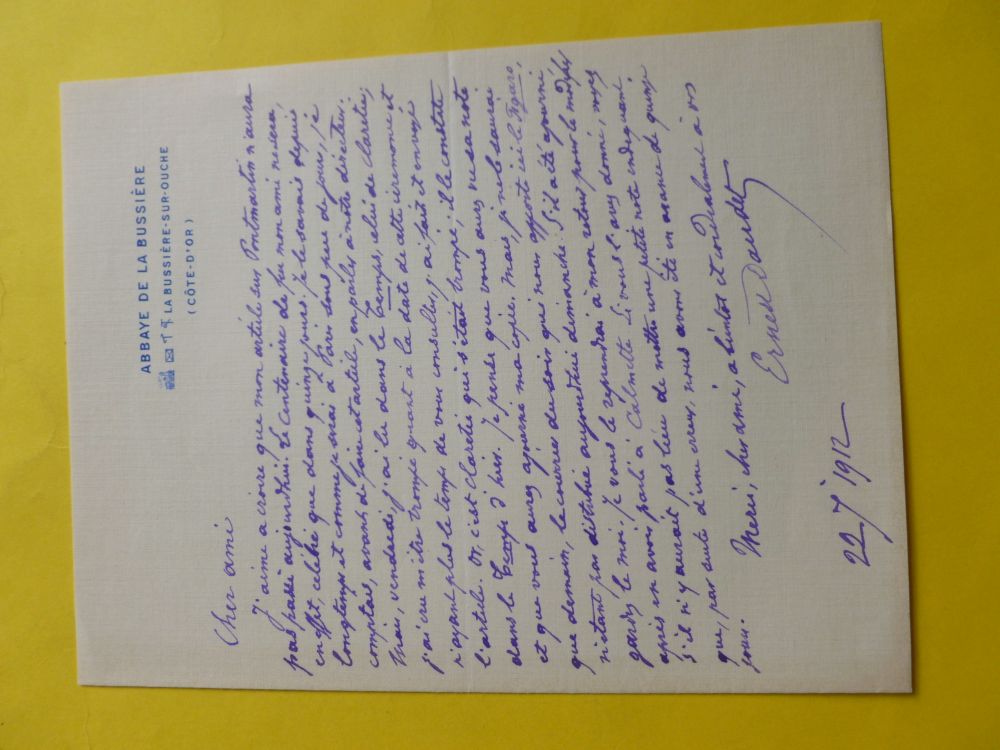 ABBAYE DE LA BUSSIÈRE
LA BUSSIÈRE-SUR-OUCHE
(CÔTE-D'OR)
Cher ami
J'aime à croire que mon article sur Pontmartin n'aura
pas passé aujourd'hui. Le Centenaire de feu mon ami ne sera,
en effet, célébré que dans quinze jours. Je le savais depuis
longtemps et comme je serai à Paris sous peu de jours, je
comptais, avant de faire cet article, en parler à notre directeur.
Mais, vendredi, j'ai lu dans le Temps, celui de Claretie;
j'ai cru m'être trompé quant à la date de cette cérémonie et
n'ayant plus le temps de vous consulter, j'ai fait et envoyé
l'article. Or, c'est Claretie qui s'était trompé; il le constate
dans le Temps d'hier. Je pense que vous aurez vu sa note
et que vous aurez ajourné ma copie. Mais je ne le saurai
que demain, le courrier du soir qui nous apporte ici le Figaro,
n'étant pas distribué aujourd'hui dimanche. S'il a été ajourné
gardez le moi. Je vous le reprendrai à mon retour pour le modifier
après en avoir parlé à Calmette. Si vous l'avez donné, voyez
s'il n'y aurait pas lieu de mettre une petite note indiquant
que, par suite d'une erreur, nous avons été en avance de quinze
jours.
Merci, cher ami, à bientôt et cordialement à vous
Ernest Daudet
22 7 1912